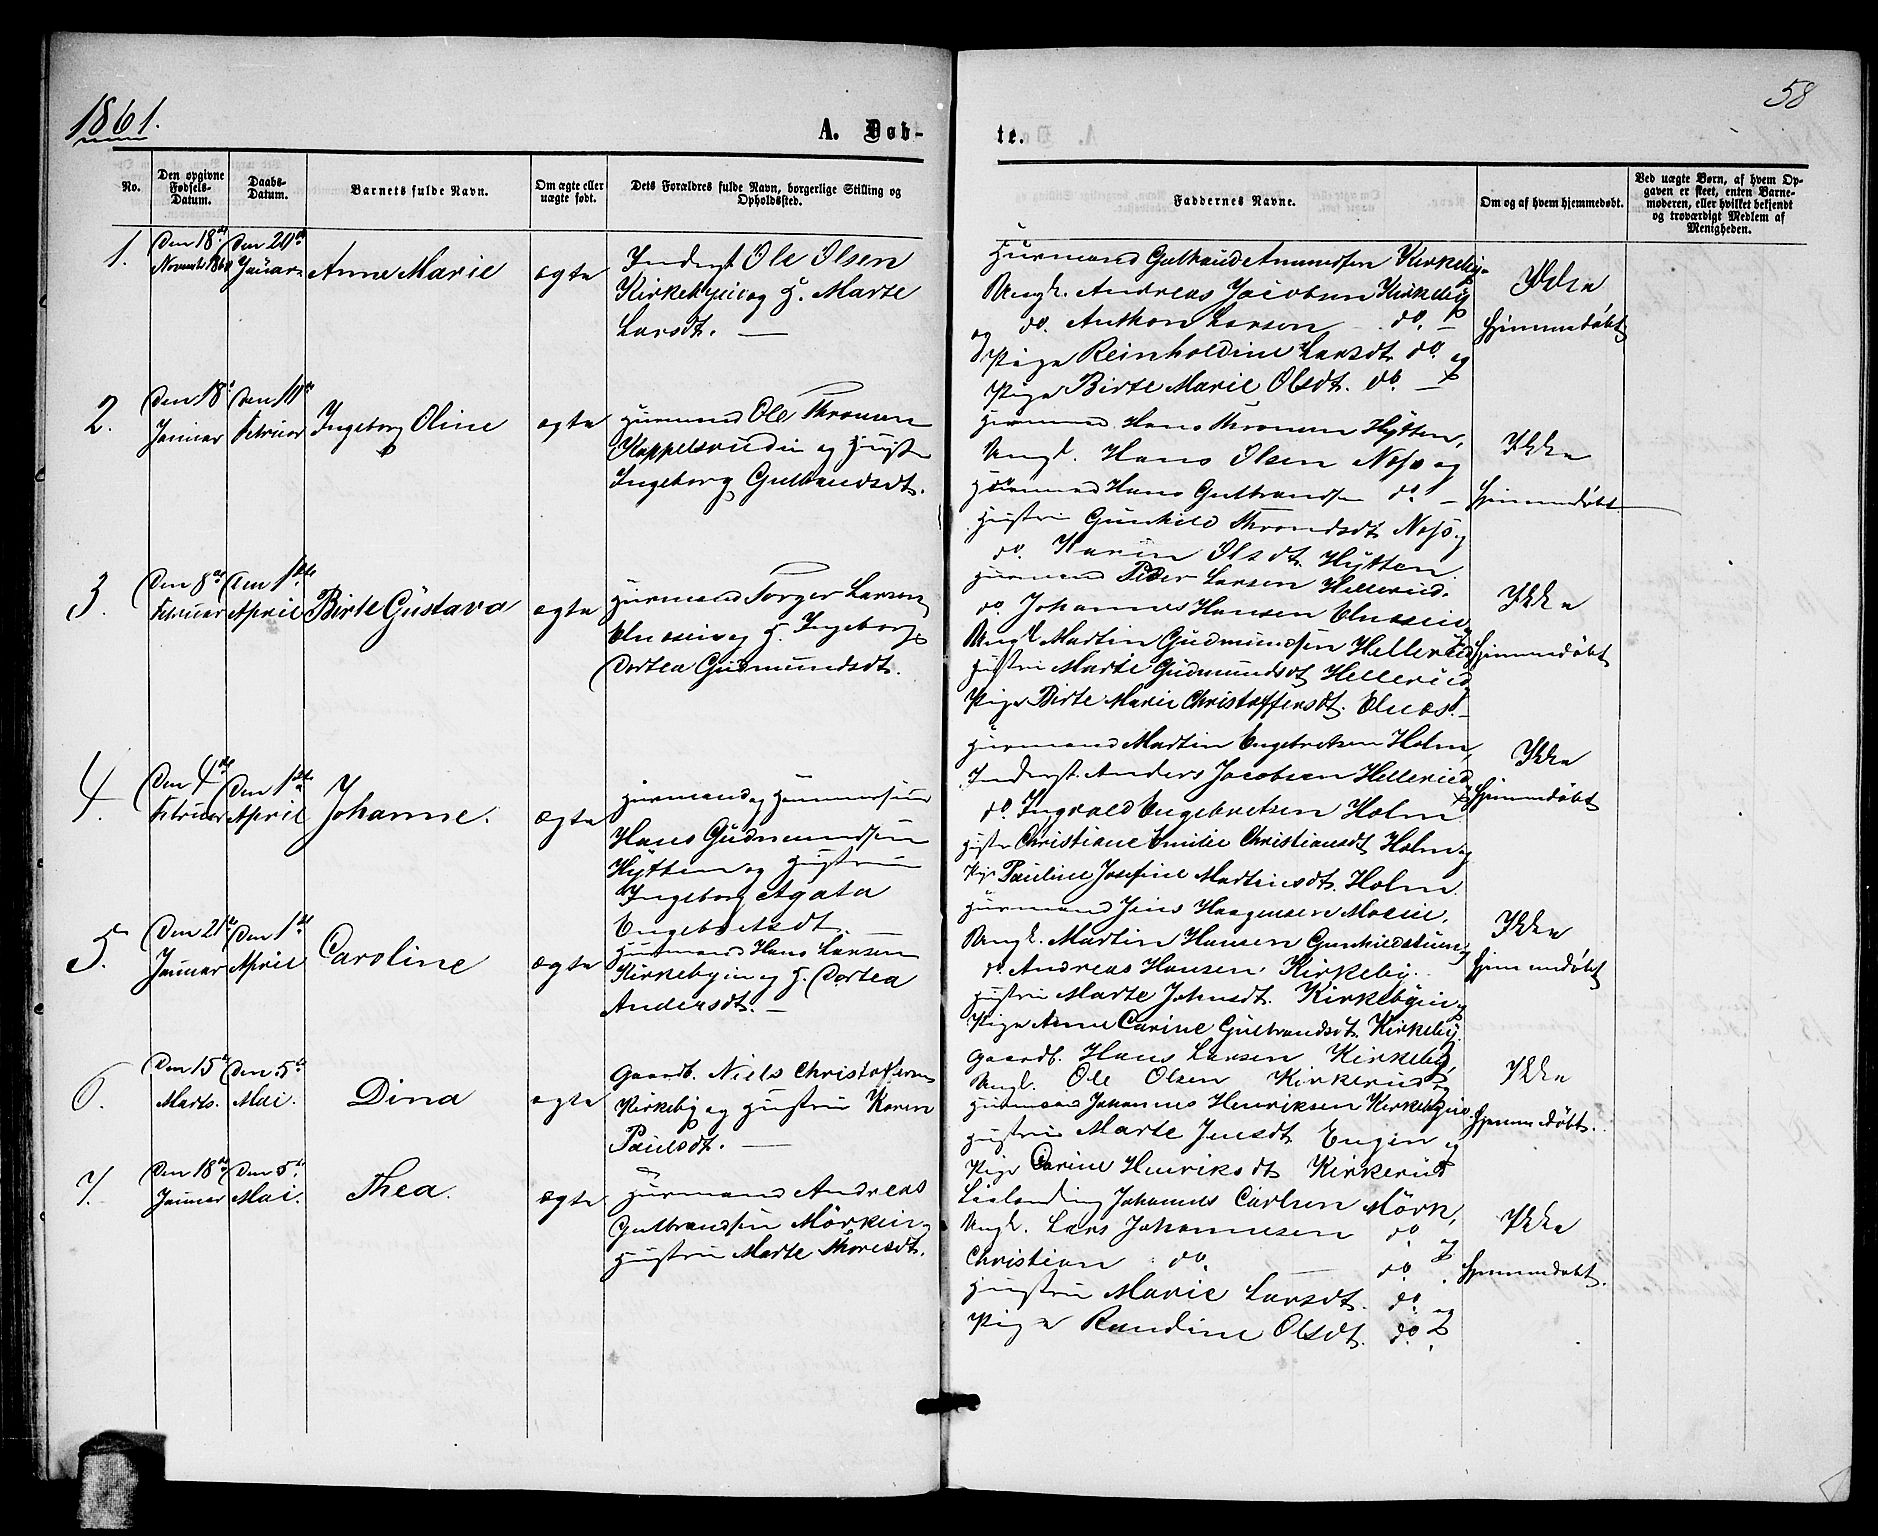 1861.
58
A. Døb-
te.
No.
Den opgivne Fødsels-Datum.
Daabs-Datum.
Barnets fulde Navn.
Om ægte eller uægte født.
Dets Forældres fulde Navn, borgerlige Stilling og Opholdssted.
Faddernes Navne.
Om og af hvem hjemmedøbt.
Ved uægte Børn, af hvem Opgaven er skeet, enten Barnemoderen, eller hvilket bekjendt og troværdigt Medlem af Menigheden.
1.
Den 18de
Novemb. 1860
Den 20de
Januar
Anne Marie
ægte
Inderst Ole Olsen
Kirkebyeie og H. Marte
Larsdt.
Huusmand Gulbrand Amundsen Kirkebye
Ungk. Andreas Jacobsen Kirkeby
og do. Anthon Larsen do.
Pige Reinholdine Larsdt. do. og
Pige Birte Marie Olsdt. do.
Ikke
hjemmedøbt
2.
Den 18de
Januar
Den 10de
Februar
Ingeborg Oline
ægte
Huusmand Ole Thronsen
Klappelsrudeie og Hustru
Ingeborg Gulbrandsdt.
Huusmand Hans Thronsen Hytten,
Ungk. Hans Olsen Næs og
Huusmand Hans Gulbrandsen do.
Hustru Gunhild Throndsdt. Næs og
do. Karin Olsdt. Hytten.
Ikke
hjemmedøbt
3.
Den 8de
Februar
Den 1ste
April
Birte Gustava
ægte
Huusmand Torger Larsen
Elnæseie og H. Ingeborg
Dortea Gudmundsdt.
Huusmand Peder Larsen Hellerud.
do. Johannes Hansen Elnæseie
Ungk. Martin Gudmundsen Hellerud
Hustru Marte Gudmundsdt. Hellerud
Pige Birte Marie Christoffersdt. Elnæs.
Ikke
hjemmedøbt
4.
Den 4de
Februar
Den 1ste
April
Johanne.
ægte
Huusmand og
Hans Gudmundsen
Hytten og Hustru
Ingeborg Agata
Engebretsdt.
Huusmand Martin Engebretsen Holm,
Inderst. Anders Jacobsen Hellerud
do. Ingvald Engebretsen Holm
Hustru Christiane Emilie Christiansdt. Holm og
Pige Pauline Josefine Martinsdt. Holm.
Ikke
hjemmedøbt
5.
Den 21de
Januar
Den 1ste
April
Caroline
ægte
Huusmand Hans Larsen
Kirkebyeie og H. Dortea
Andersdt.
Huusmand Jens Haagensen Moeeie.
Ungk. Martin Hansen
do. Andreas Hansen Kirkeby.
Hustru Marte Johnsdt. Kirkebyeie og
Pige Anne Carine Gulbrandsdt. Kirkeby.
Ikke
hjemmedøbt
6.
Den 15de
Marts.
Den 5te
Mai.
Dina
ægte
Gaardb. Niels Christoffersen
Kirkeby og Hustru Karen
Paulsdt.
Gaardb. Hans Larsen Kirkeby,
Ungk. Ole Olsen Kirkerud og
Huusmand Johannes Henriksen Kirkebyeie.
Hustru Marte Jensdt. Engen og
Pige Carine Henriksdt. Kirkerud
Ikke
hjemmedøbt.
7.
Den 18de
Januar
Den 5te
Mai.
Thea.
ægte
Huusmand Andreas
Gulbrandsen Mörkeie og
Hustru Marte Thoresdt.
Leilending Johannes Carlsen Mörk,
Ungk. Lars Johannesen do. og
Christian do. do.
Hustru Marie Larsdt. do. og
Pige Randine Olsdt. do.
Ikke
hjemmedøbt.